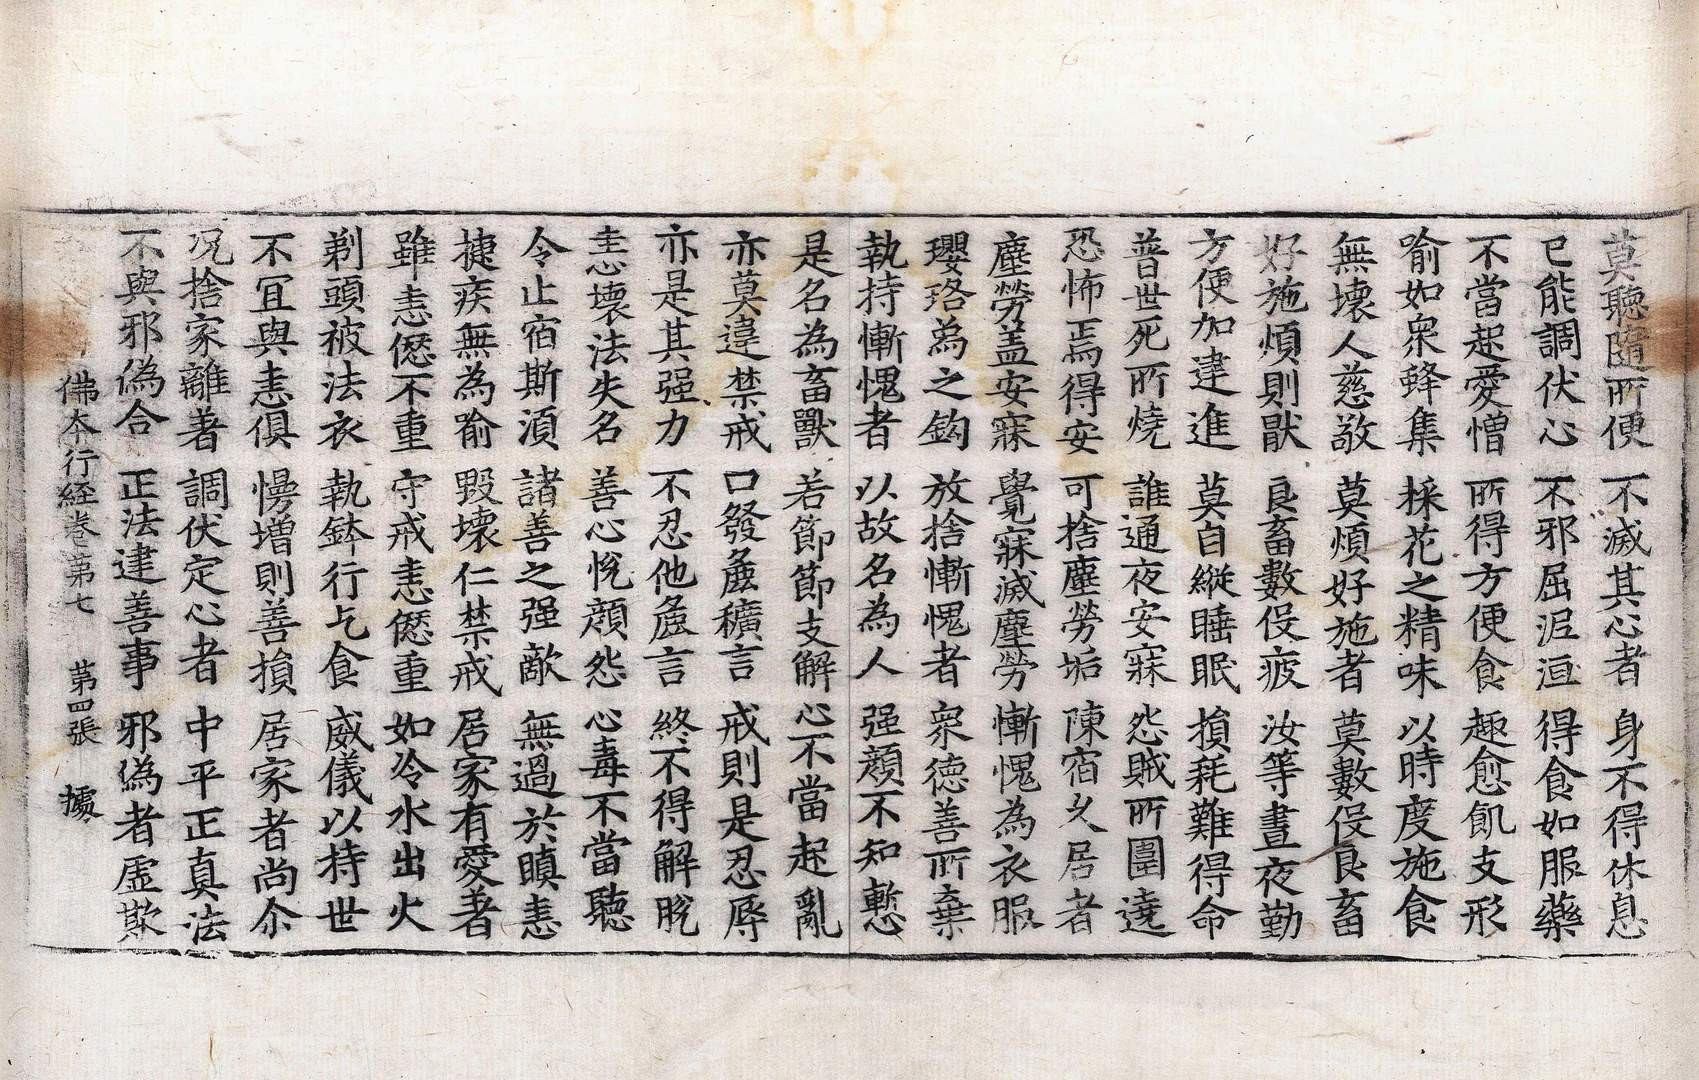 莫聽隨所便 不滅其心者 身不得休息
已能調伏心 不邪屈泥洹 得食如服藥
不當起愛憎 所得方便食 趣愈飢支形
喻如衆蜂集 採花之精味 以時度施食
無壞人慈敬 莫煩好施者 莫數伇良畜
好施煩則猒 良畜數伇疲 汝等晝夜勤
方便加建進 莫自縱睡眠 損耗難得命
普世死所燒 誰通夜安寐 怨賊所圍遶
恐怖焉得安 可捨塵勞垢 陳宿久居者
塵勞盖安寐 覺寐滅塵勞 慚愧為衣服
瓔珞為之鈎 放捨慚愧者 衆德善所棄
執持慚愧者 以故名為人 强顔不知慙
是名為畜獸 若節節支解 心不當起亂
亦莫違禁戒 口發麁穬言 戒則是忍辱
亦是其强力 不忍他麁言 終不得解脫
恚壞法失名 善心恱顔怨 心毒不當聽
令止宿斯湏 諸善之强敵 無過於瞋恚
捷疾無為喻 毀壞仁禁戒 居家有愛著
雖恚𠎝不重 守戒恚𠎝重 如冷水出火
剃頭被法衣 執鉢行乞食 威儀以持世
不冝與恚俱 慢增則善損 居家者尚尒
况捨家離著 調伏定心者 中平正真法
不與邪偽合 正法建善事 邪偽者虛欺
佛本行経卷第七 第四張 據